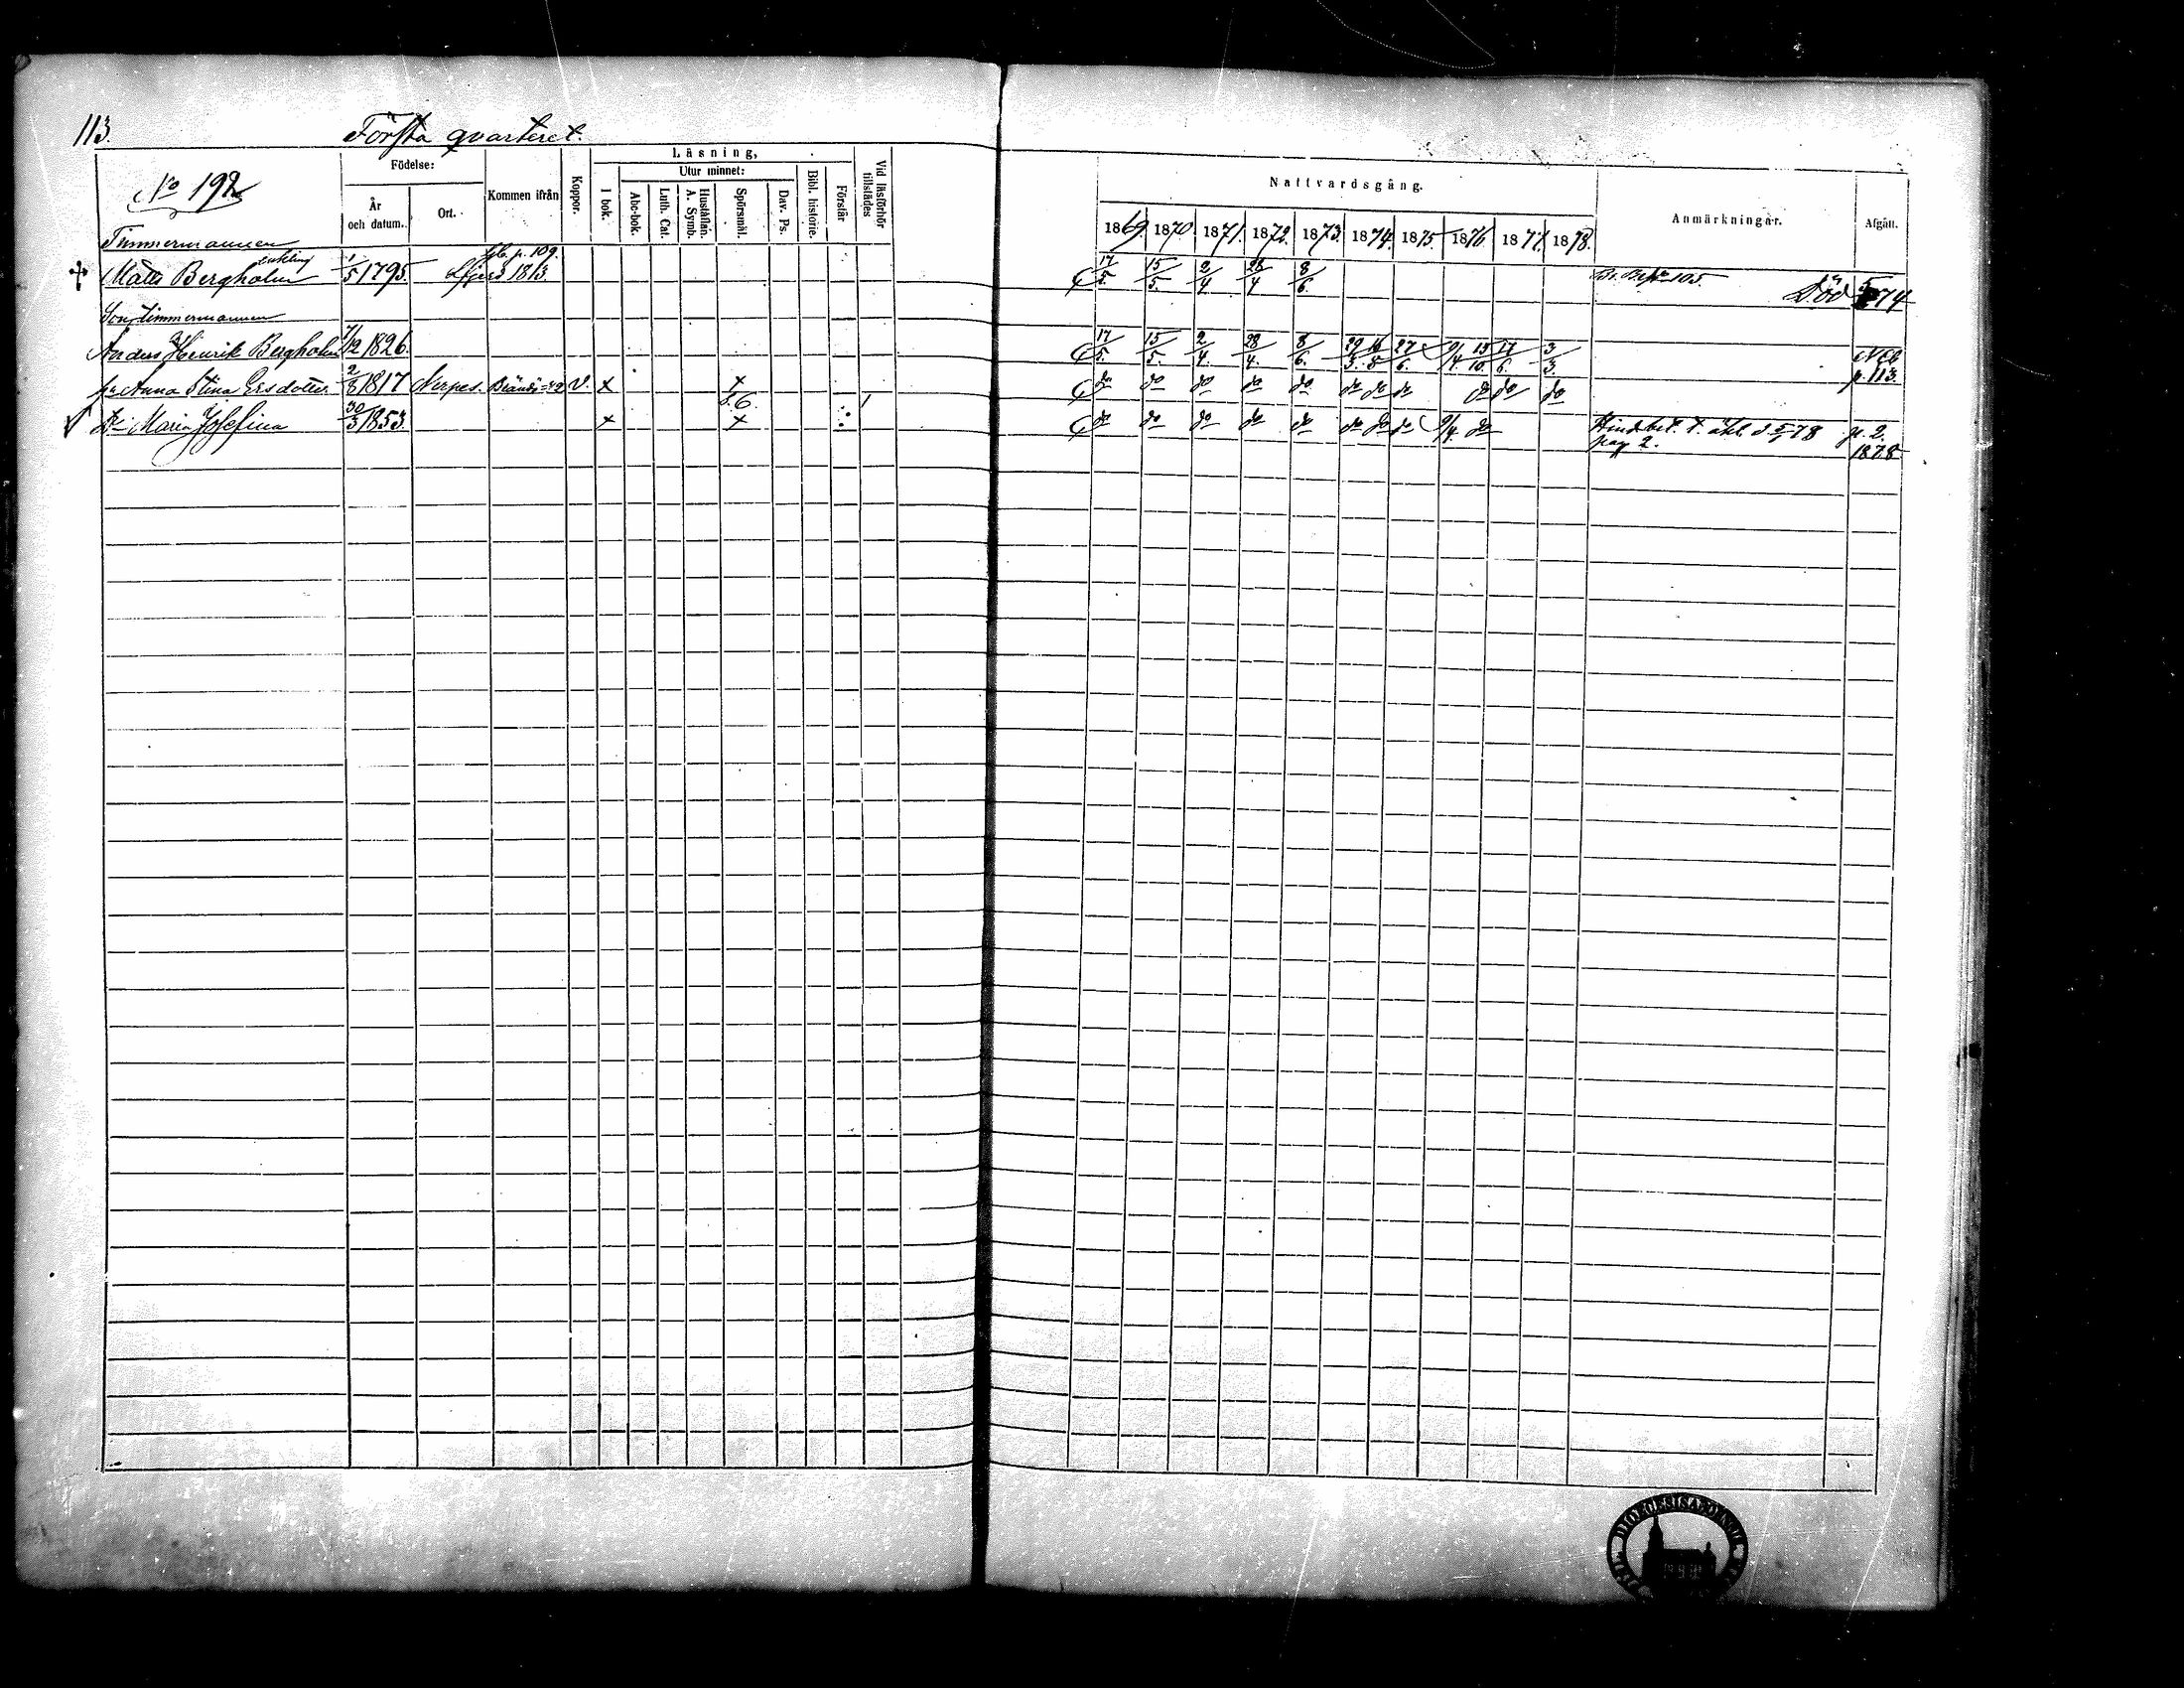 113.
Första qvarteret.
No 192
Födelse:
År och datum.
Ort.
Kommen ifrån
Koppor.
Läsning,
I bok.
Utur minnet:
Abc-bok.
Luth. Cat.
Hustaflan. A. Symb.
Spörsmål.
Dav. Ps.
Bibl. historie.
Förstår
Vid läsförhör tillstädes
Nattvardsgång.
1869. 1870. 1871. 1872. 1873. 1874. 1875. 1876. 1877. 1878.
Anmärkningar.
Afgått.
Timmermannen
Matts Bergholm enkling 1/5 1795. p. 109. 1813. 17/5. 15/5. 2/4. 28/4 8/6. 105 Död 74
Son, timmermannen
Anders Henrik Bergholm 7/12 1826. 17/5. 15/5. 2/4. 28/4. 8/6. 29/3. 16/8 27/6. 9/4. 15/10. 17/6. 3/3. p. 113.
Anna Stina Ersdotter 2/8 1817 Nerpes. v. x x do do do do do do do do do do do
Dr Maria Josefina 30/3 1853. x x do do do do do do do do 9/4 do 78 p. 2. 1878
pag 2.